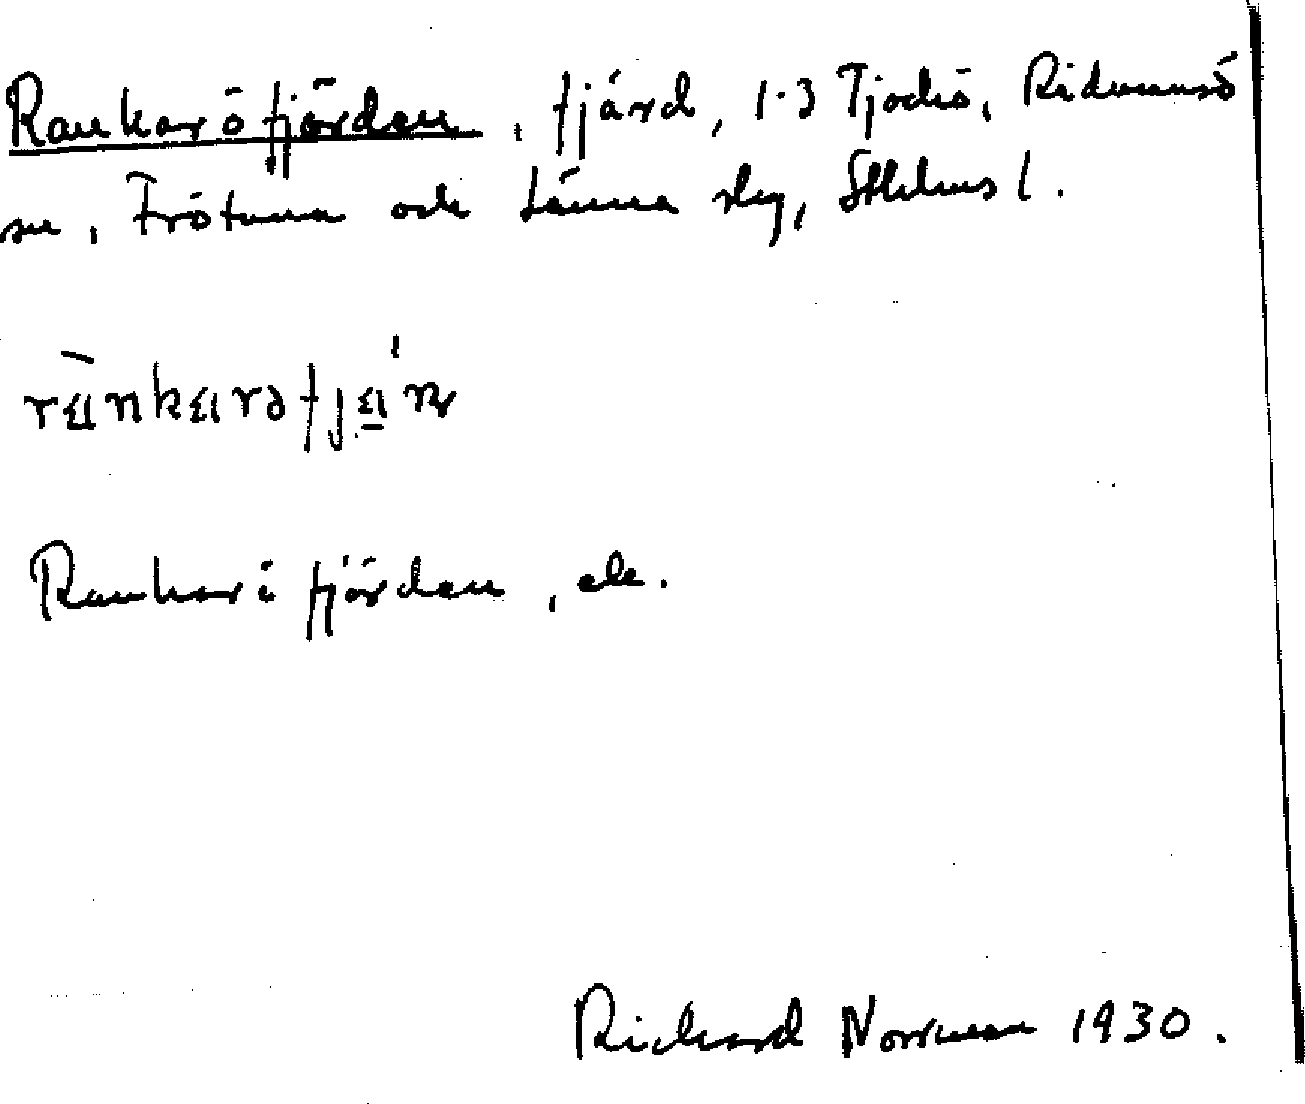 Rankaröfjärden, fjärd, 1.3 Tjockö, Ridmansö
sn, Frötuna och Länna slg, Sthlms l.
ränkarəfjän
Rankaröfjärden, ek.
Richard Norrman 1930.